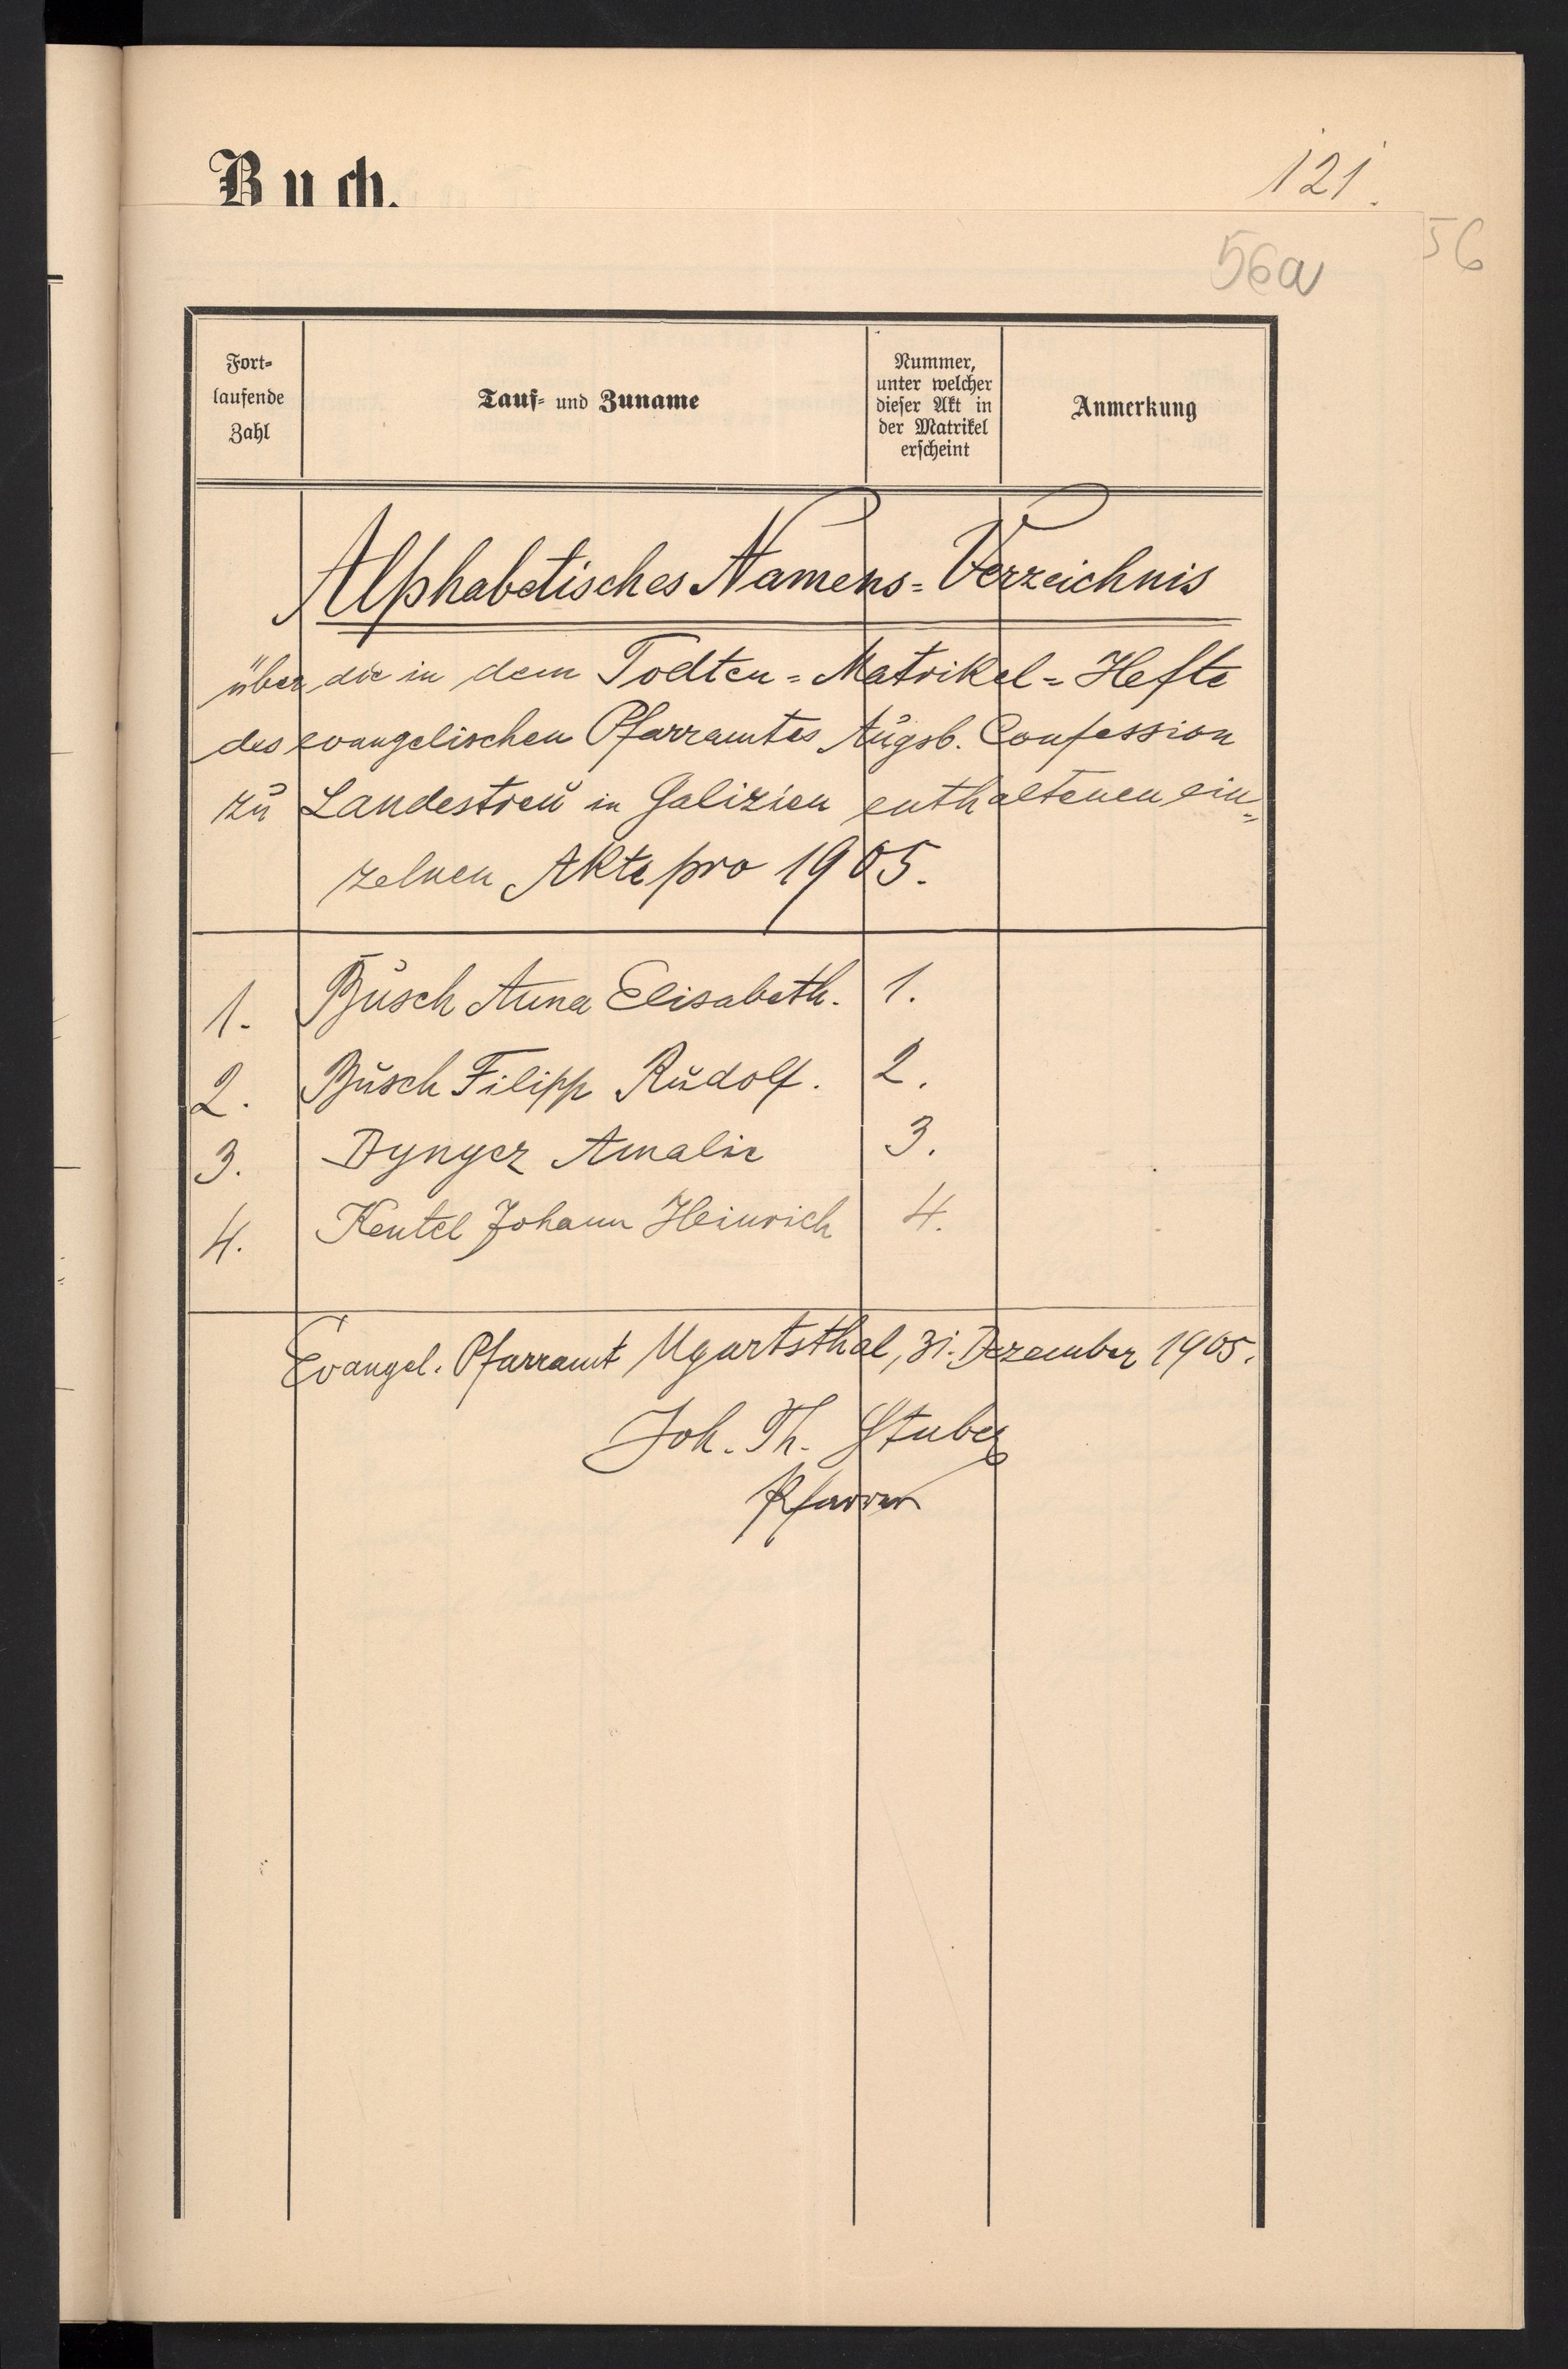 Buch.
121.
56
56a
Fort-
laufende
Zahl
Tauf- und Zuname
Nummer,
unter welcher
dieser Akt in
der Matrikel
erscheint
Anmerkung
Alphabetisches Namens-Verzeichnis
über die in dem Todten-Matrikel-Hefte
des evangelischen Pfarramtes Augsb. Confession
zu Landestreu in Galizien enthaltenen ein-
zelnen Akte pro 1905.
1. Busch Anna Elisabeth. 1.
2. Busch Filipp Rudolf. 2.
3. Dynyer Amalie 3.
4. Keutel Johann Heinrich 4.
Evangel. Pfarramt Ugartsthal, 31. Dezember 1905.
Joh. Th. Stuber
Pfarrer